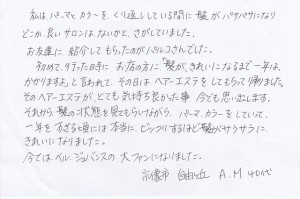 私は、パーマと カラーを くり返ししている間に 髪が パサパサになり
どこか 良いサロンは、ないかと、さがしていました。
お友達に 紹介して もらったのが パルコさんでした。
初めて、行った時に お店の方に「髪が、きれいになるまで 一年は、
かかりますよ。」と言われて、その日は ヘアーエステを してもらって帰りました。
その ヘアーエステが、とても気持ち良かった事 今でも思い出します。
それから、髪の 状態を 見てもらいながら パーマ、カラーをしていて、
一年を すぎる頃には 本当に、ビックリするほど髪が サラサラに
きれいに なりました。
今では ベル・ジュバンスの 大ファンになりました。
宗像市 自由ヶ丘 A.M 40代